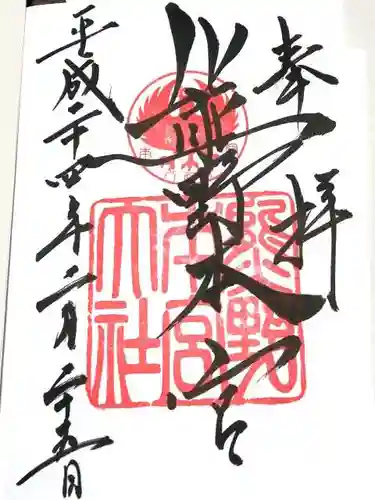 奉拝
熊野本宮
平成二十四年二月二十五日
熊野
本宮
大社